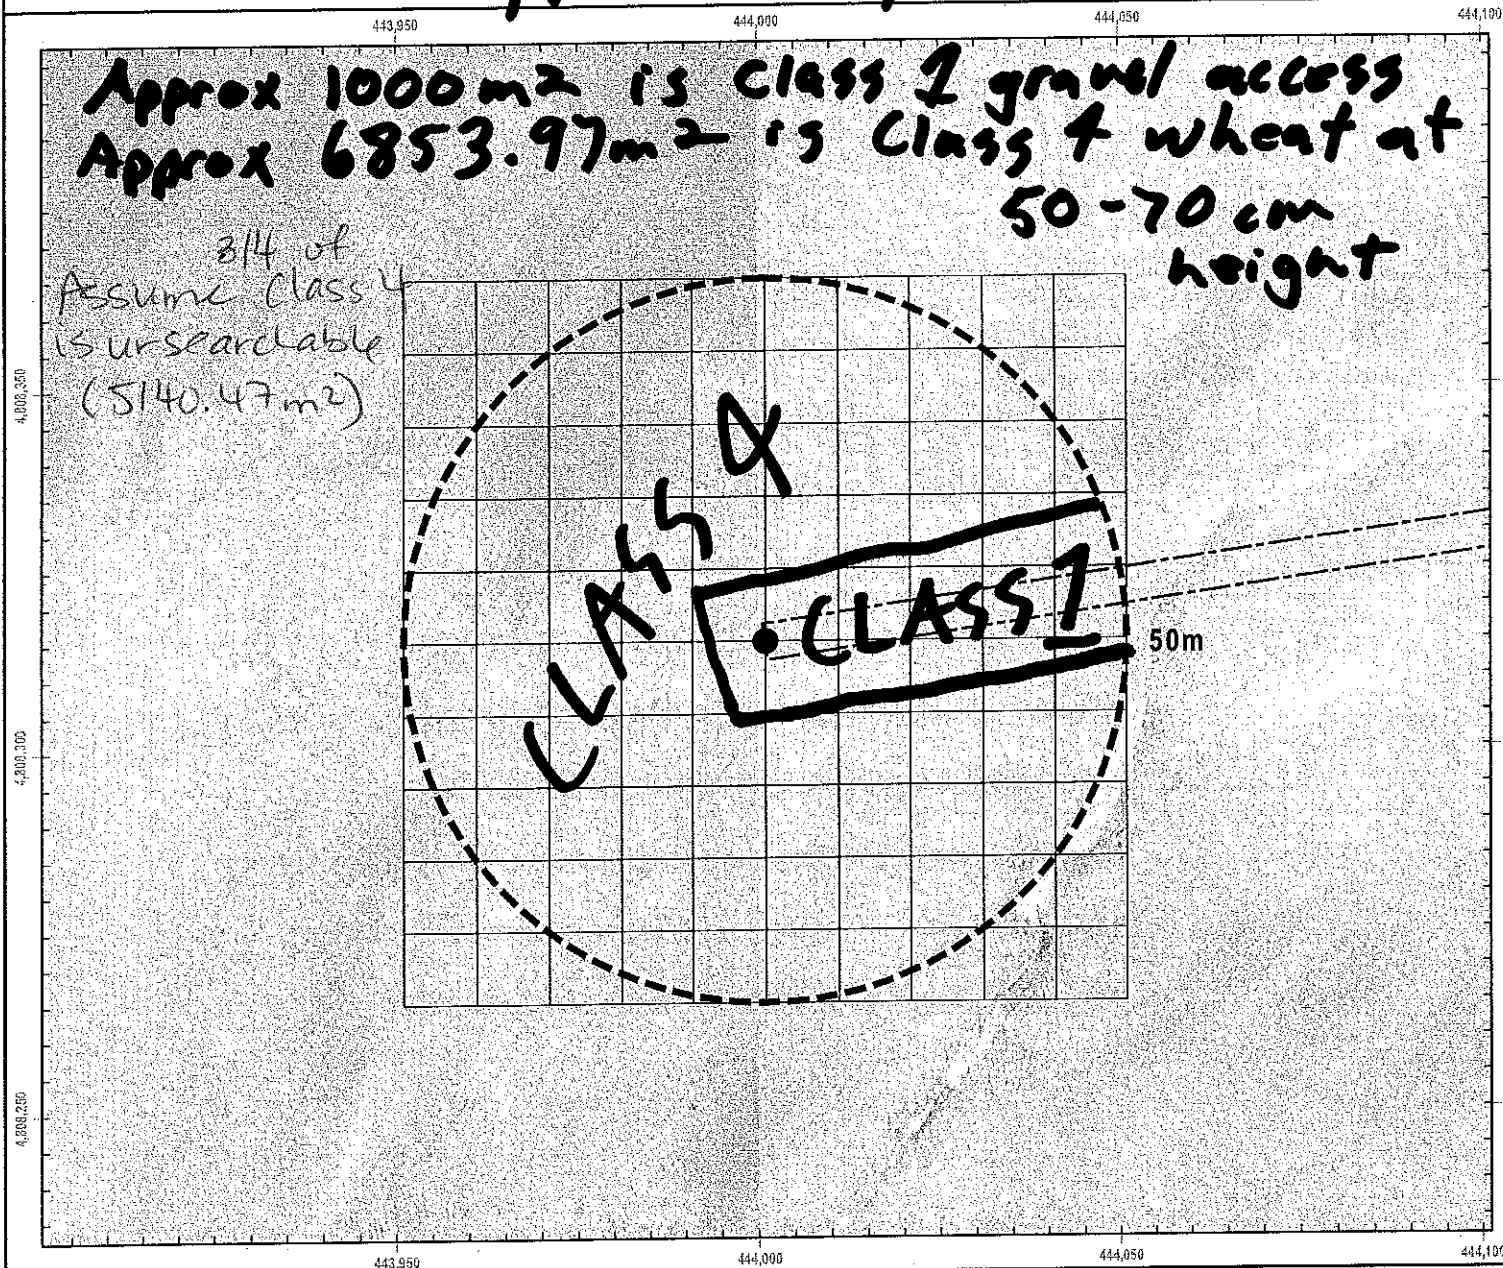 443,950 444,000 444,050 444,100
Approx 1000m2 is Class 1 gravel access
Approx 6853.97m2 is Class 4 wheat at
50-70 cm
height
3/4 of
Assume Class 4
is unsearchable
(5140.47m2)
4,808,350
CLASS 4
CLASS 1
50m
4,808,300
4,808,250
443,950 444,000 444,050 444,100